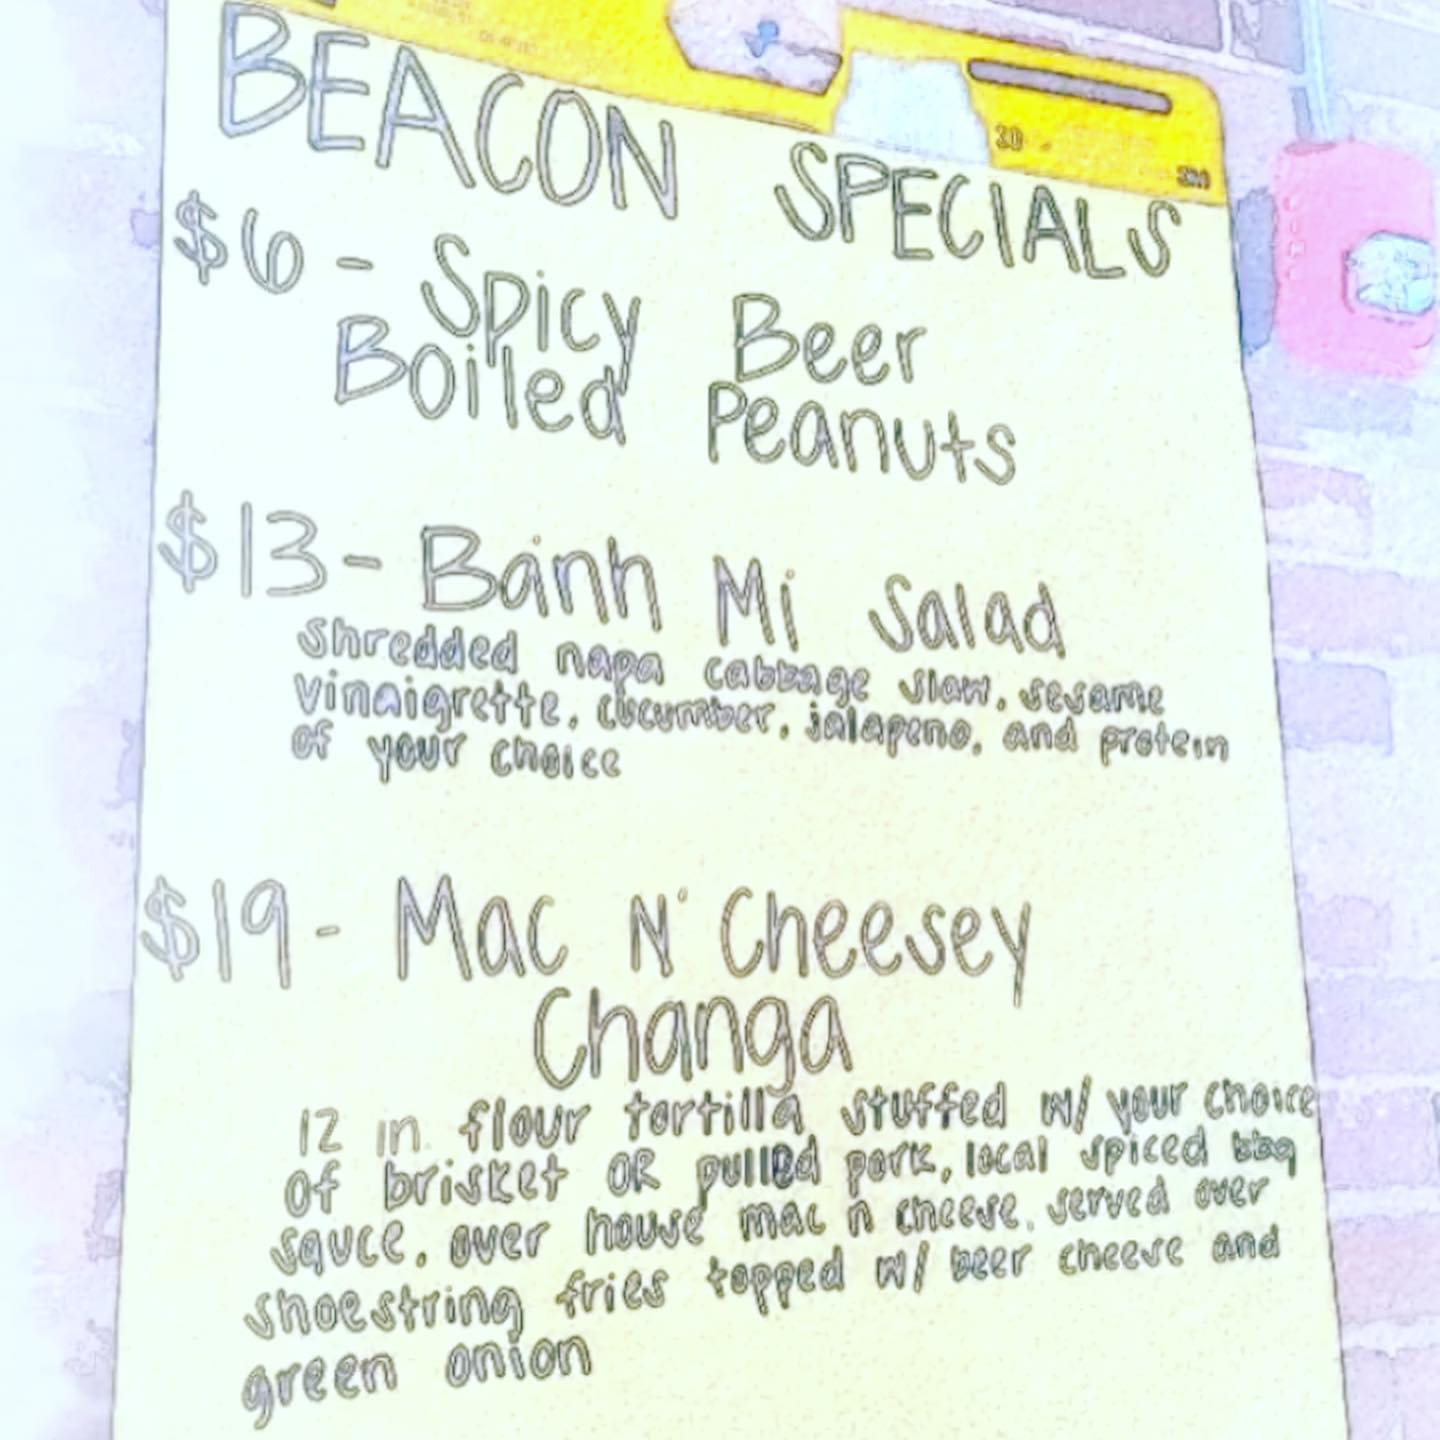 BEACON SPECIALS
$6 - Spicy Beer
Boiled Peanuts
$13 - Bánh Mi Salad
Shredded napa cabbage slaw, sesame
vinaigrette, cucumber, jalapeno, and protein
of your choice
$19 - Mac N' Cheesey
Changa
12 in flour tortilla stuffed w/ your choice
of brisket OR pulled pork, local spiced bbq
sauce, over house mac n cheese, served over
shoestring fries topped w/ beer cheese and
green onion